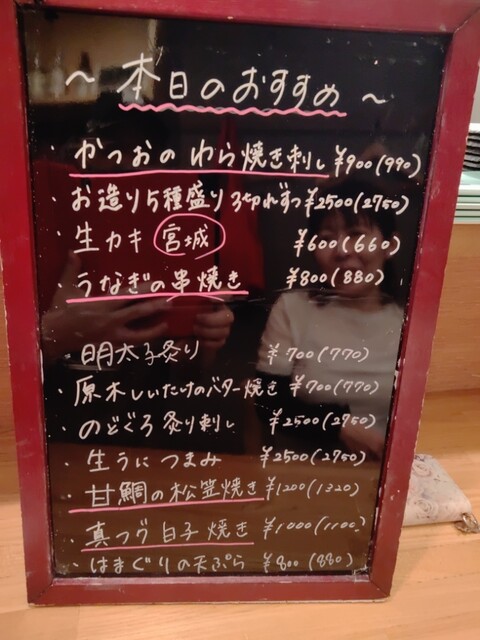 ～ 本日のおすすめ ～
・かつおのわら焼き刺し ¥900(990)
・お造り5種盛り3切れずつ ¥2500(2750)
・生カキ 宮城 ¥600(660)
・うなぎの串焼き ¥800(880)
・明太子炙り ¥700(770)
・原木しいたけのバター焼き ¥700(770)
・のどぐろ炙り刺し ¥2500(2750)
・生うにつまみ ¥2500(2750)
・甘鯛の松笠焼き ¥1200(1320)
・真フグ白子焼き ¥1000(1100)
・はまぐりの天ぷら ¥800(880)